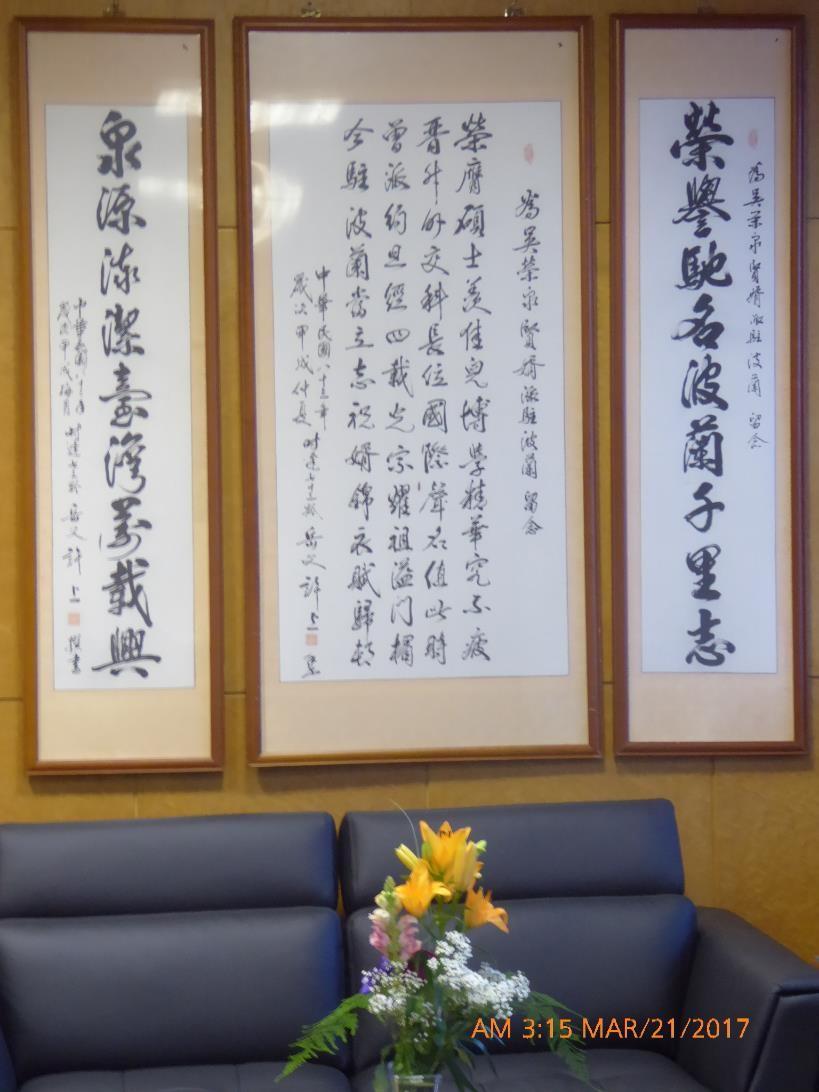 為吳榮泉賢婿派駐波蘭 留念
榮譽馳名波蘭千里志
為吳榮泉賢婿派駐波蘭 留念
榮膺碩士羨佳兒博學精華究不疲
晋升外交科長位國際聲名值此時
曾派約旦經四載光宗耀祖溢門楣
今駐波蘭當立志祝婿錦衣賦歸
中華民國八十三年
歲次甲戌仲夏 時達七十三齡 岳父 許
泉源流潔臺灣萬載興
中華民國八十三年
歲次甲戌梅月 時達七十三齡 岳父 許 撰書
AM 3:15 MAR/21/2017